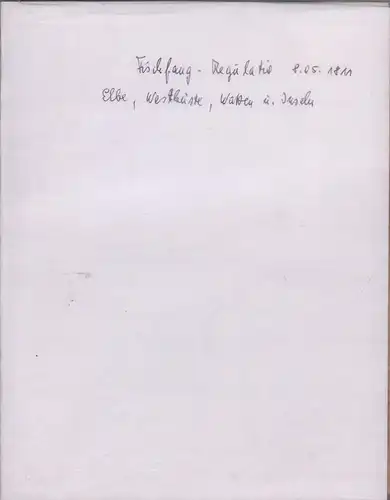 Fischfang - Regulativ 8.05.1811
Elbe, Westküste, Watten u. Inseln